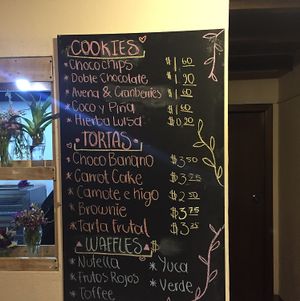 COOKIES
* Chocochips $1.60
* Doble Chocolate $1.90
* Avena & Cranberries $1.60
* Coco y Piña $1.60
* Hierba Luisa $0.20
TORTAS
* Choco Banano $3.50
* Carrot Cake $3.75
* Camote e higo $2.50
* Brownie $3.75
* Tarta Frutal $3.25
WAFFLES $
* Nutella * Yuca
* Frutos Rojos * Verde
* Toffee